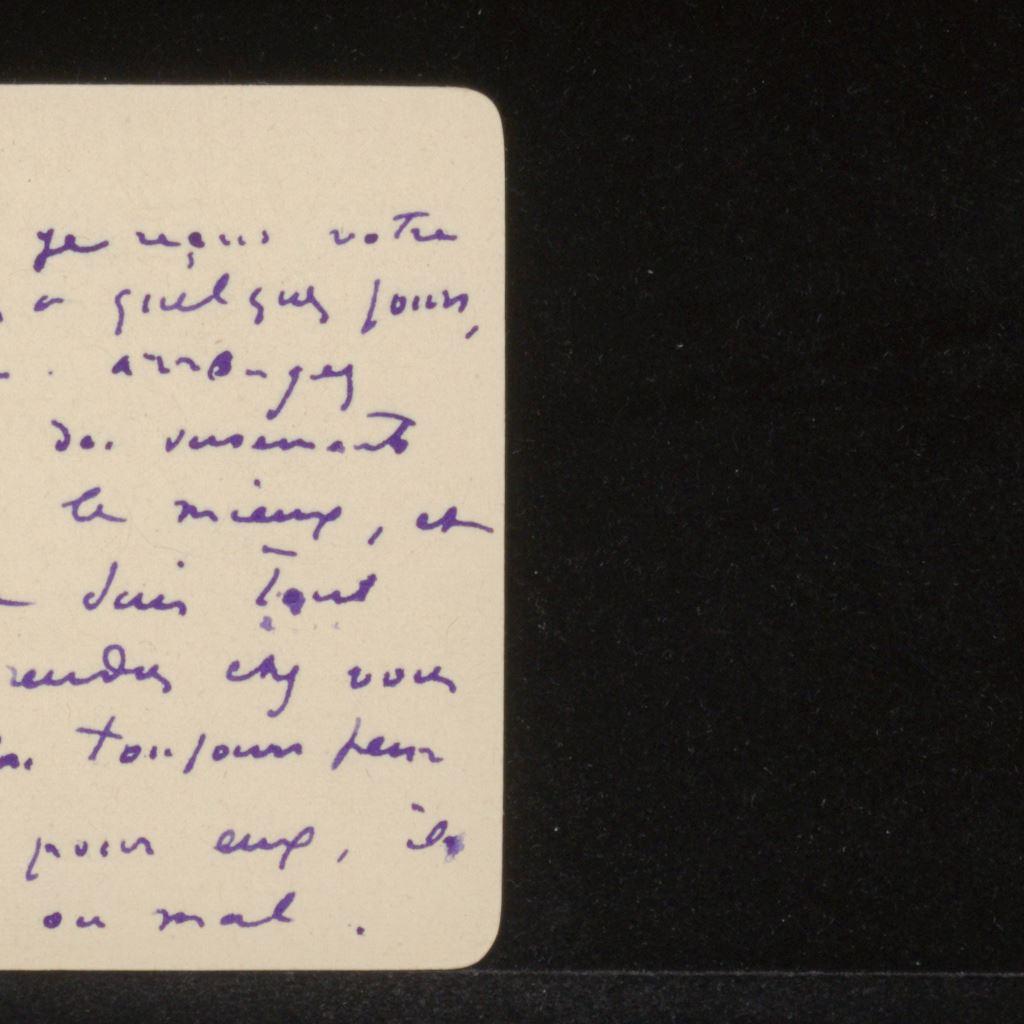 je reçus votre
a quelques jours,
. arrangez
des versements
le mieux, et
suis tout
rendes chez vous
toujours peur
pour eux, ils
ou mal.